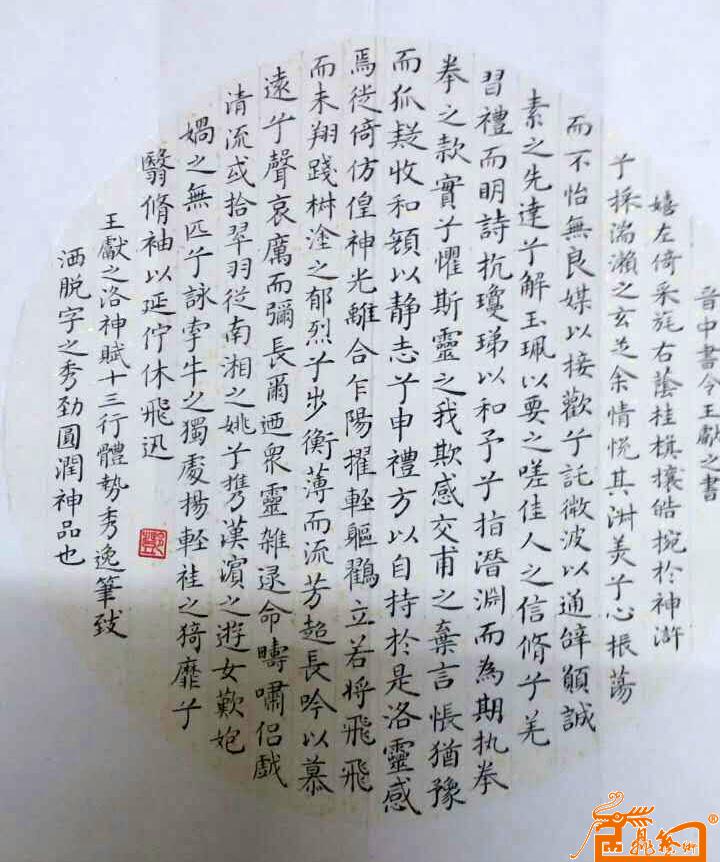 晋中書令王獻之書
嬉左倚采旄右蔭桂旗攘皓捥於神滸
兮採湍瀨之玄芝余情悦其淋美兮心振蕩
而不怡無良媒以接歡兮託微波以通辝願誠
素之先達兮解玉珮以要之嗟佳人之信脩兮羌
習禮而明詩抗瓊珶以和予兮指潛淵而為期执拳
拳之款實兮懼斯靈之我欺感交甫之棄言悵猶豫
而狐疑收和顏以静志兮申禮方以自持於是洛靈感
焉徙倚仿偟神光離合乍陽擢輕軀鶴立若将飛飛
而未翔踐椒塗之郁烈兮步衡薄而流芳超長吟以慕
遠兮聲哀厲而彌長爾迺衆靈雜遝命疇嘯侣戲
清流或拾翠羽従南湘之姚兮攜漢濱之遊女歎炮
媧之無匹兮詠牽牛之獨處揚輕袿之猗靡兮
翳脩袖以延佇休飛迅
王獻之洛神賦十三行體势秀逸筆致
洒脱字之秀劲圓潤神品也